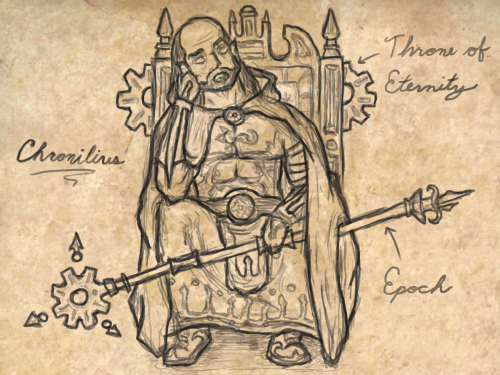 Throne of
Eternity
Chronilius
Epoch